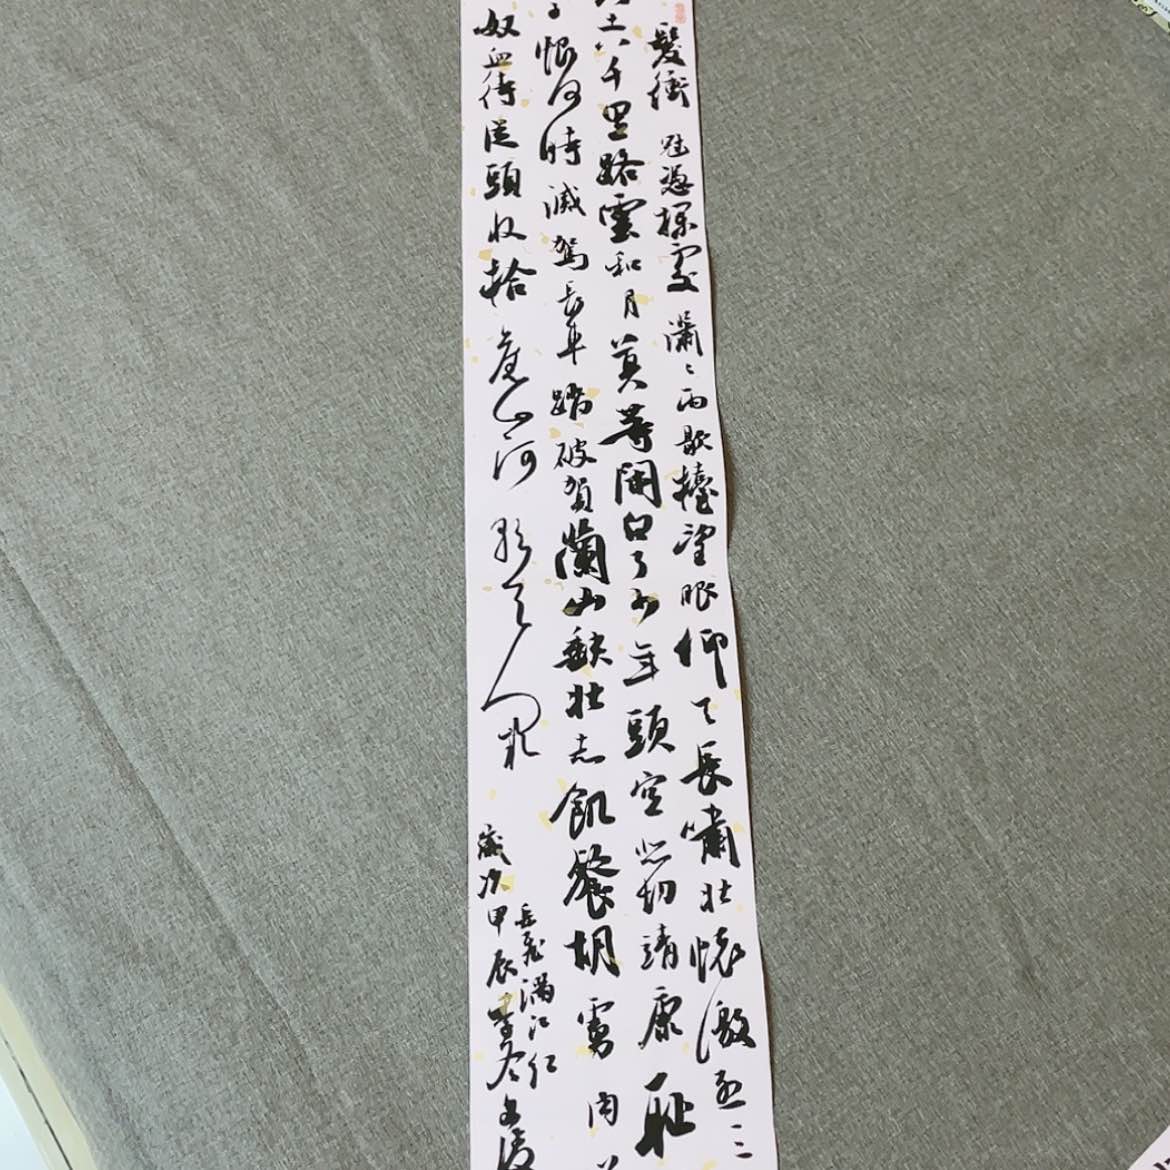 髮衝冠憑欄處瀟〻雨歇擡望眼仰天長嘯壯懷激烈三
土八千里路雲和月莫等閑白了少年頭空悲切靖康恥
子恨何時滅駕長車踏破賀蘭山缺壯志飢餐胡虜肉
奴血待從頭收拾舊山河朝天闕
歲次甲辰季冬
岳飛滿江紅